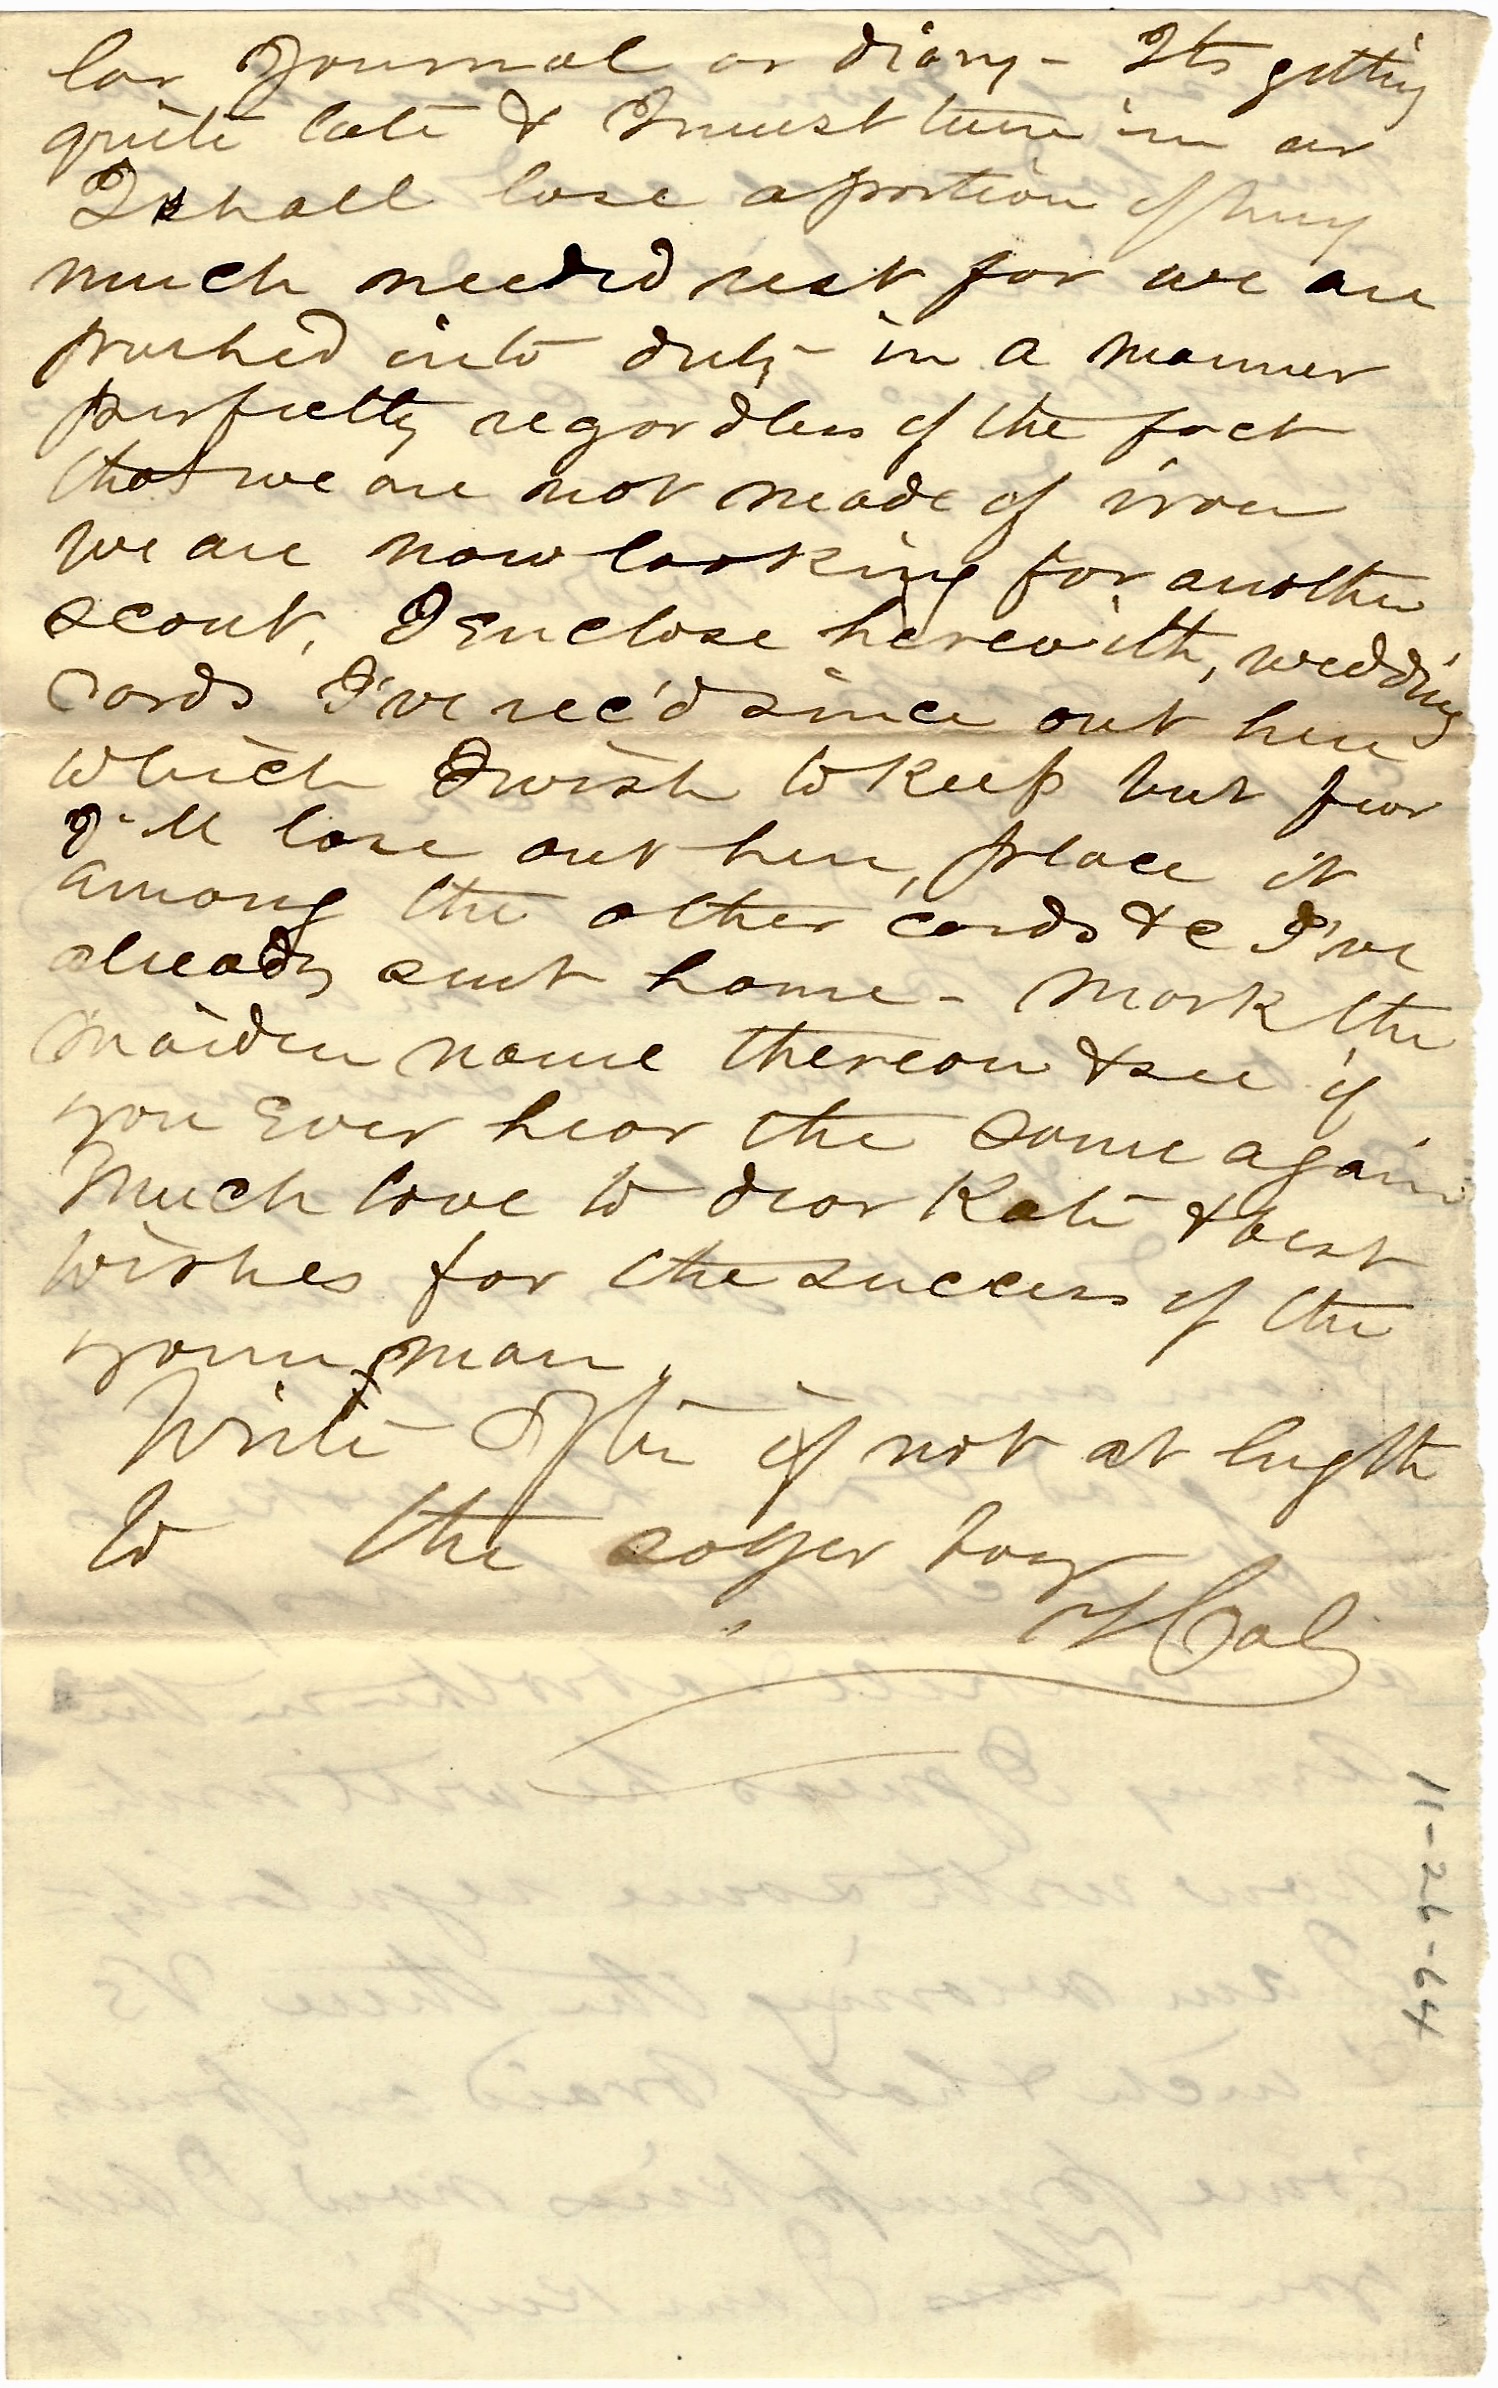 lar Journal or diary - Its getting
quite late & I must turn in or
I shall lose a portion of my
much needed rest for we are
pushed into duty in a manner
perfectly regardless of the fact
that we are not made of iron
We are now looking for another
scout, I enclose herewith, wedding
cards I've rec'd since out here
which I wish to keep but fear
I'll lose out here, place it
among the other cards &c I've
already sent home - Mark the
maiden name thereon & see if
you Ever hear the same again
Much love to dear Kate & best
wishes for the success of the
young man.
Write often if not at length
to the soger boy
Cal
11-26-64